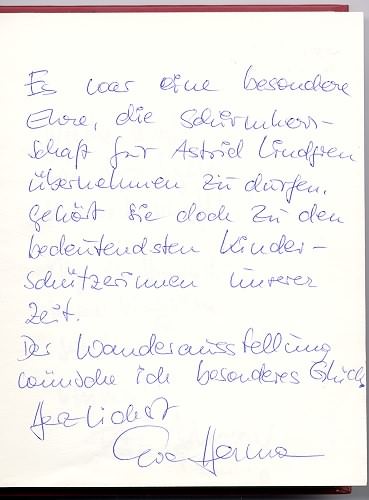 Es war eine besondere
Ehre, die Schirmherr-
schaft für Astrid Lindgren
übernehmen zu dürfen.
Gehört sie doch zu den
bedeutendsten Kinder-
schützerinnen unserer
Zeit.
Der Wanderausstellung
wünsche ich besonderes Glück.
Herzlichst
Eva Herman